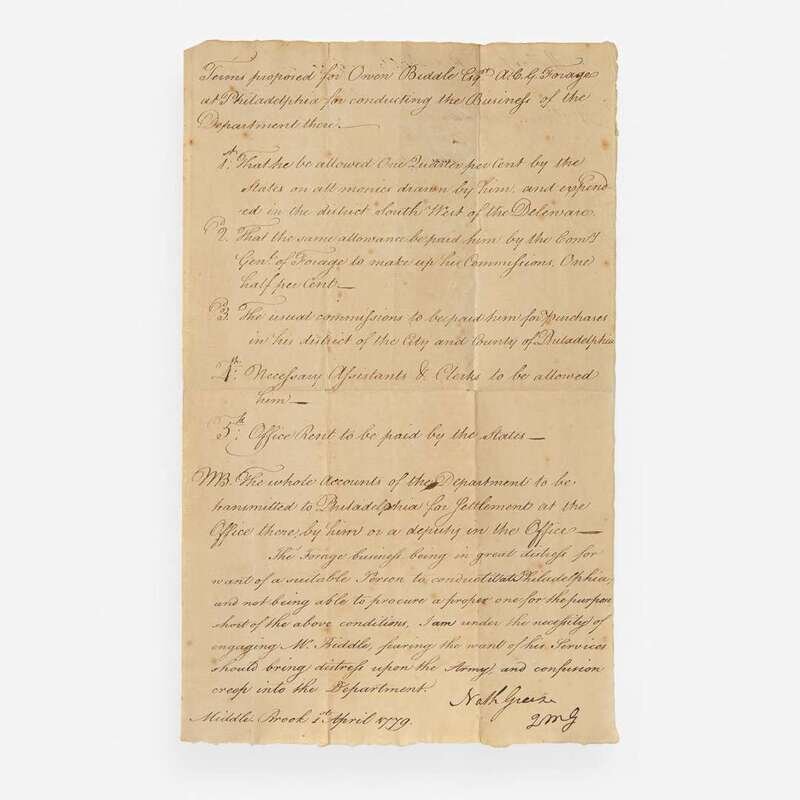 Terms proposed for Owen Biddle Esqr. A.C.G. Forage
at Philadelphia for conducting the Business of the
Department there.—
1.st That he be allowed One Quarter per Cent by the
States on all monies drawn by him, and expend-
ed in the district South West of the Deleware.
2.d That the same allowance be paid him by the Comy.
Genl. of Forage to make up his Commissions, One
half per Cent.—
3.d The usual commissions to be paid him for purchases
in his district of the City and County of Philadelphia
4.th Necessary Assistants & Clerks to be allowed
him—
5.th Office Rent to be paid by the States—
NB. The whole Accounts of the Department to be
transmitted to Philadelphia for Settlement at the
Office there, by him or a deputy in the Office—
The Forage business being in great distress for
want of a suitable Person to conduct it at Philadelphia,
and not being able to procure a proper one for the purpose
short of the above conditions, I am under the necessity of
engaging Mr. Biddle, fearing the want of his Services
should bring distress upon the Army, and confusion
creep into the Department.
Nath Greene
QMG
Middle Brook 1st April 1779.